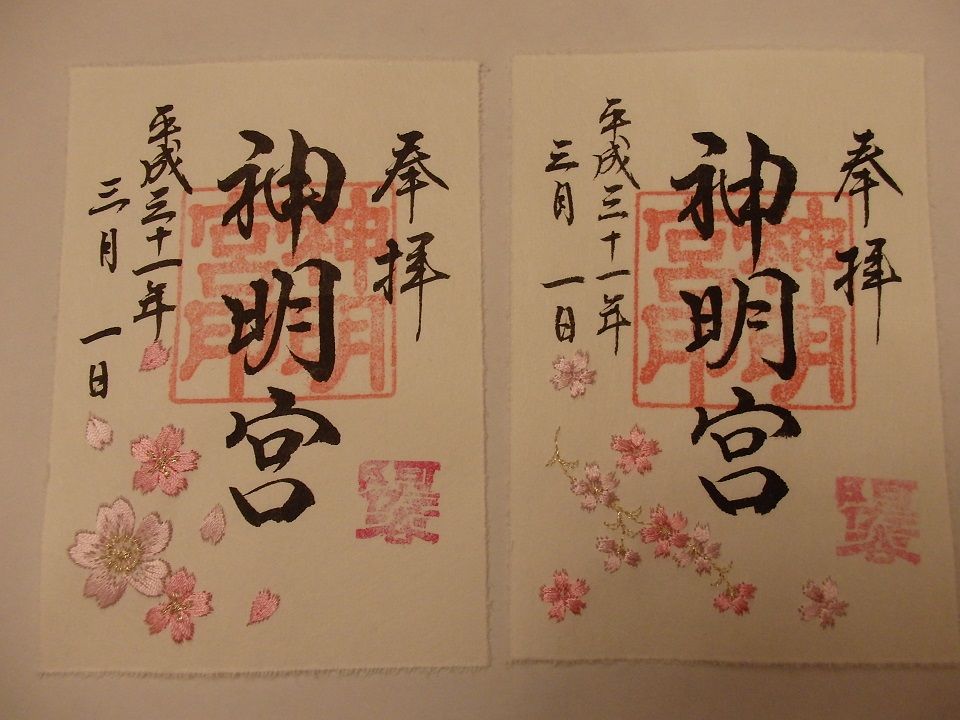 奉拝
神明宮
平成三十一年
三月一日
奉拝
神明宮
平成三十一年
三月一日